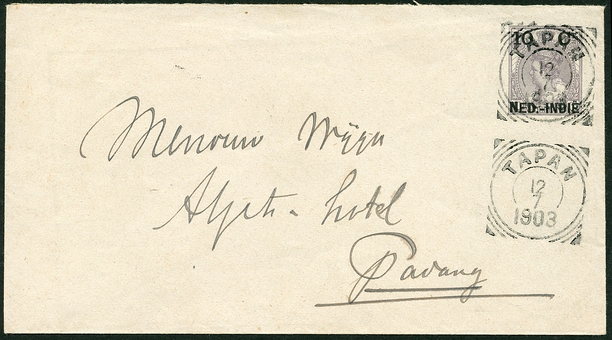 10 Ct
NED.-INDIË
TAPAN
12
7
TAPAN
12
7
1903
Mevrouw Wijga
Atjeh-hotel
Padang